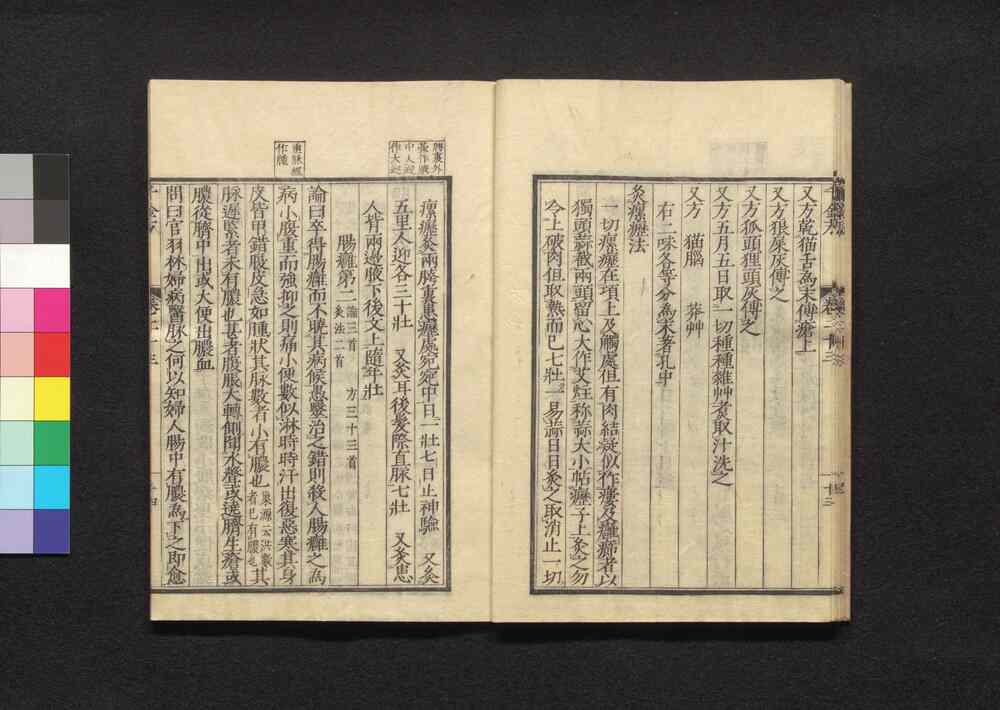 又方乾猫舌為末傅瘡上
又方狼屎灰傅之
又方狐頭狸頭灰傅之
又方五月五日取一切種種雜艸煑取汁洗之
又方 猫腦 莽艸
右二味各等分為末著孔中
灸瘰癧法
一切瘰癧在項上及觸處但有肉結凝似作瘻及癰癤者以
獨頭蒜截兩頭留心大作艾炷称蒜大小帖癧子上灸之勿
令上破肉但取熱而已七壯一易蒜日日灸之取消止一切
瘰癧灸兩胯裏患癧處宛宛中日一壯七日止神驗 又灸
五里人迎各三十壯 又灸耳後髮際直脉七壯 又灸患
人背兩邊腋下後文上隨年壯
腸癰第二 論三首 方三十三首
灸法二首
論曰卒得腸癰而不曉其病候愚醫治之錯則殺人腸癰之為
病小腹重而强抑之則痛小便數似淋時時汗出復惡寒其身
皮皆甲錯腹皮急如腫狀其脉數者小有膿也巢源云洪數者已有膿也其
脉遲緊者未有膿也甚者腹脹大轉側聞水聲或遶臍生瘡或
膿從臍中出或大便出膿血
問曰官羽林婦病醫脉之何以知婦人腸中有膿為下之即愈